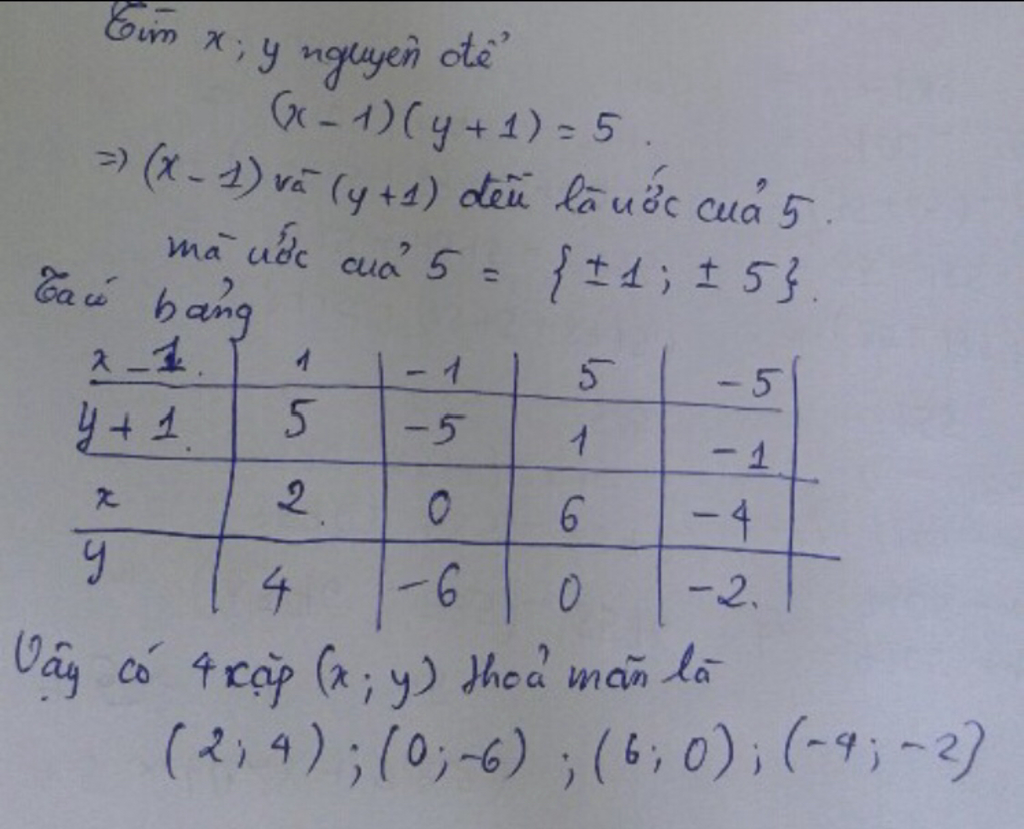 Tìm x; y nguyên để
(x - 1)(y + 1) = 5.
=> (x - 1) và (y + 1) đều là ước của 5.
mà ước của 5 = {±1; ± 5}.
Ta có bảng
x - 1. 1 -1 5 -5
y + 1. 5 -5 1 -1
x 2. 0 6 -4
y 4 -6 0 -2.
Vậy có 4 cặp (x; y) thoả mãn là
(2; 4); (0; -6); (6; 0); (-4; -2)